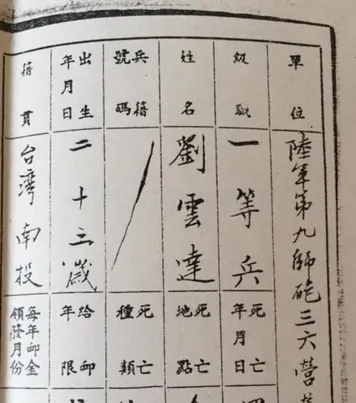 單位
陸軍第九師砲三六營
級職
一等兵
姓名
劉雲達
兵籍號碼
出生年月日
二十三歲
籍貫
台灣南投
死亡年月日
死亡地點
死亡種類
給卹年限
每年卹金領發月份